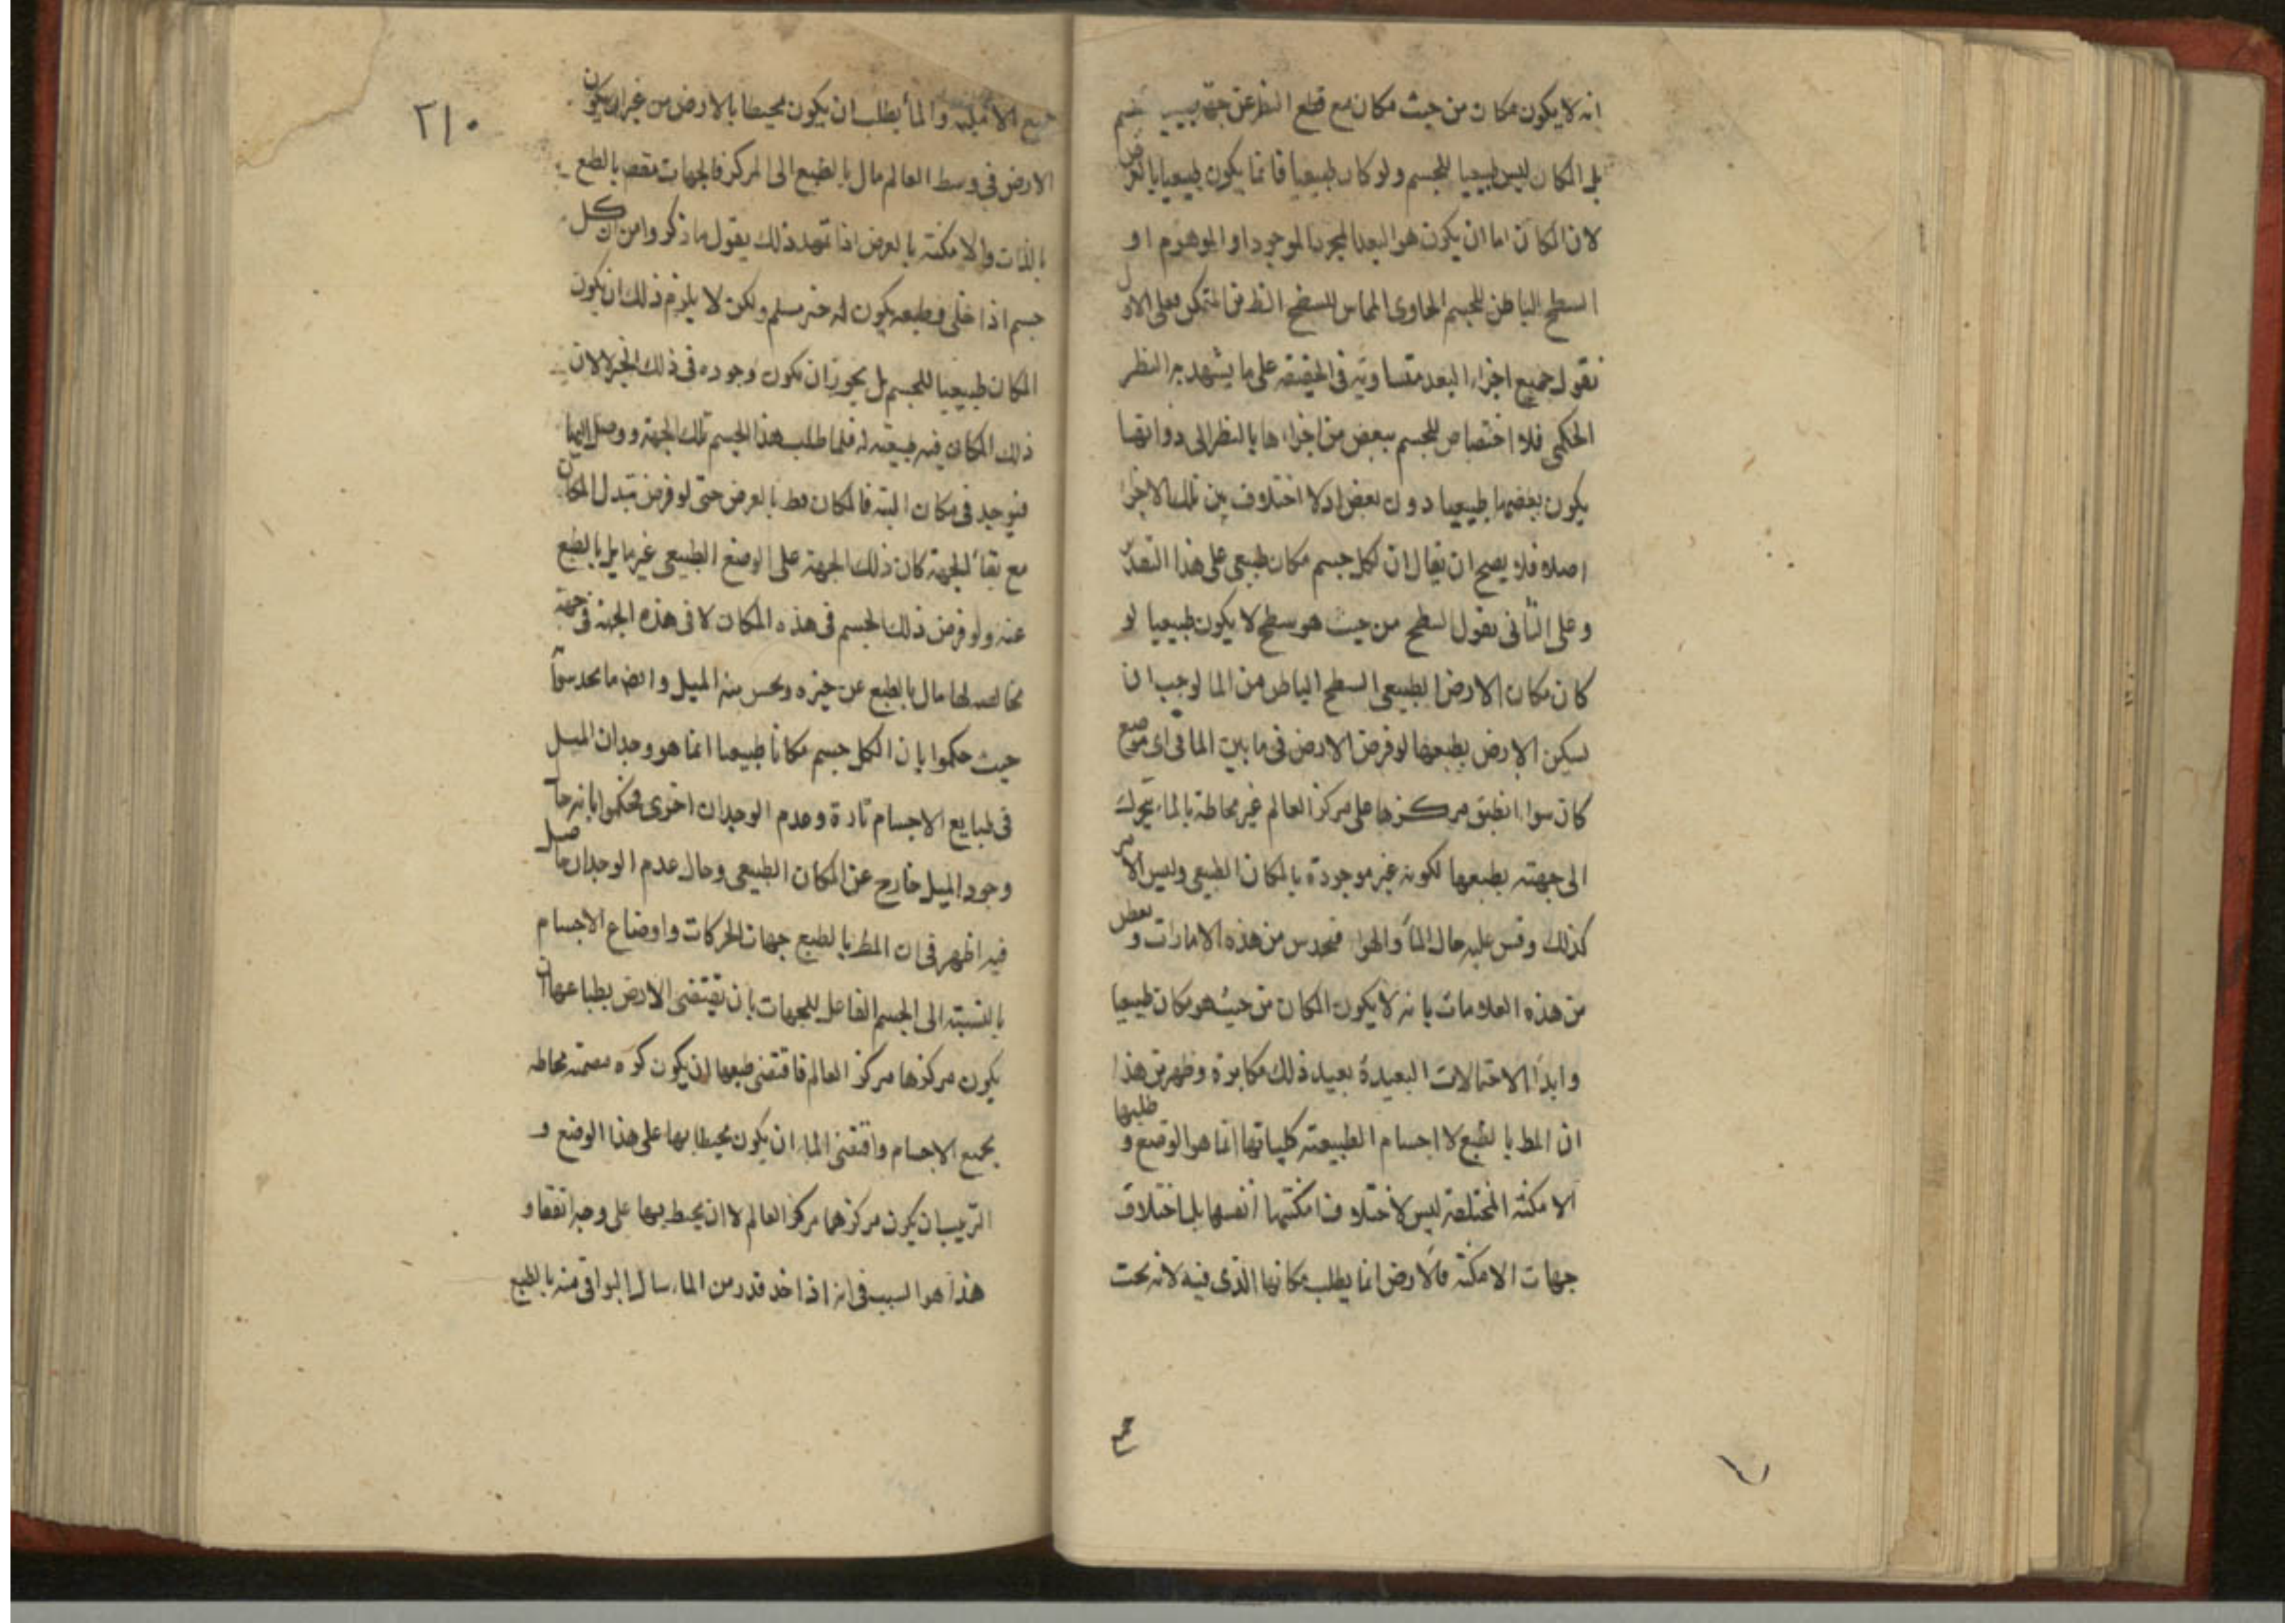 انه لا يكون مكان من حيث مكان مع قطع النظر عن جهة
بل المكان ليس طبيعيا للجسم ولو كان طبيعيا فانما يكون طبيعيا بالعرض
لان المكان اما ان يكون هو البعد المجرد الموجود او الموهوم او
السطح الباطن للجسم الحاوى المماس للسطح الظ من المتمكن فعلى الاول
نقول جميع اجزاء البعد متساوية فى الحقيقة على ما يشهد به النظر
الحكمى فلا اختصاص للجسم ببعض من اجزاءها بالنظر الى ذواتها
يكون بعضها طبيعيا دون بعض اذ لا اختلاف بين تلك الاجزاء
اصلا فلا يصح ان يقال ان لكل جسم مكان طبيعى على هذا التقدير
وعلى الثانى نقول السطح من حيث هو سطح لا يكون طبيعيا لو
كان مكان الارض الطبيعى السطح الباطن من الما لوجب ان
يسكن الارض بطبعها لو فرض الارض فى ما بين الما فى اى موضع
كان سواء انطبق مركزها على مركز العالم غير محاطة بالماء يتحرك
الى جهته بطبعها لكونه غير موجودة بالمكان الطبيعى وليس الامر
كذلك وقس عليه حال الماء والهواء فتحدس من هذه الامارات وبعض
من هذه العلامات بانه لا يكون المكان من حيث هو مكان طبيعيا
وابداء الاحتمالات البعيدة بعيد ذلك مكابرة وظهر من هذا
ان المط بالطبع لا اجسام الطبيعته كلياتها انما هو الوضع و طلبها
الامكنة المختلفة ليس لاختلاف امكنتها انفسها بل اختلاف
جهات الامكنة فالارض انما يطلب مكانها الذى فيه لانه تحت
٢١٠
جميع الامكنة والماء يطلب ان يكون محيطا بالارض من غير ان يكون
الارض فى وسط العالم مال بالطبع الى المركز فالجهات مقصـ بالطبع
بالذات والامكنة بالعرض اذا تمهد ذلك يقول ما ذكروا من ان كل
جسم اذا خلى وطبعه يكون له حيز مسلم ولكن لا يلزم ذلك ان يكون
المكان طبيعيا للجسم بل يجوز ان يكون وجوده فى ذلك الحيز لا لان
ذلك المكان فيه طبيعته له فلما طلب هذا الجسم تلك الجهة ووصل اليها
فيوجد فى مكان البتة فالمكان مط بالعرض حتى لو فرض تبدل المكان
مع بقاء الجهة كان ذلك الجهة على الوضع الطبيعى غير مايل بالطبع
عنه ولو فرض ذلك الجسم فى هذه المكان لا فى هذه الجهة فى جهة
مخالفه لها مال بالطبع عن حيزه ويحس منه الميل وايض ما تحدسوا
حيث حكموا بان لكل جسم مكانا طبيعيا انما هو وجدان الميل
فى طبايع الاجسام تارة وعدم الوجدان اخرى فحكموا بانه حال
وجود الميل خارج عن المكان الطبيعى وحال عدم الوجدان حاصل
فيه اظهر فى ان المط بالطبع جهات الحركات واوضاع الاجسام
بالنسبته الى الجسم الفاعل للجهات بان يقتضى الارض بطباعها ان
يكون مركزها مركز العالم فاقتضى طبعها ان يكون كره مصمته محاطه
بجميع الاجسام واقتضى الماء ان يكون محيطا بها على هذا الوضع و
الترتيب ان يكون مركزهما مركز العالم لا ان يحيط بها على وجه اتفقا و
هذا هو السبب فى انه اذا اخذ قدر من الماء سال البواقى منه بالطبع